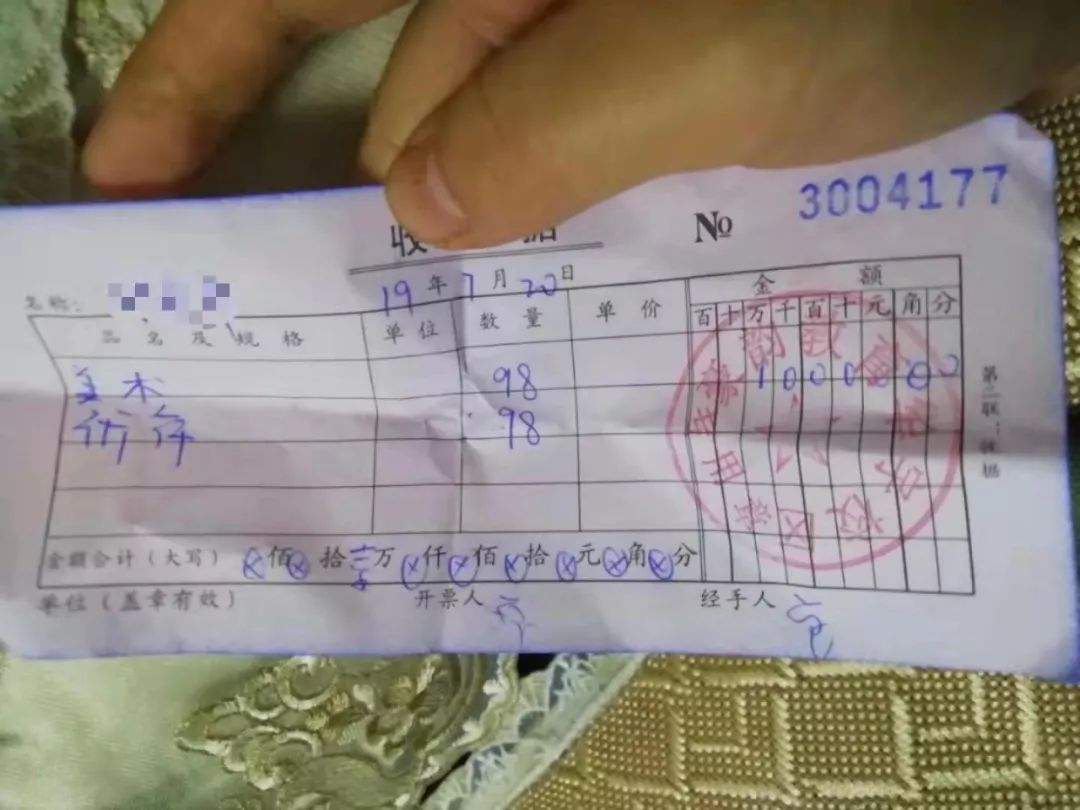 收 据 № 3004177
名称: 19 年 7 月 20 日
品名及规格 单位 数量 单价 金额
百 十 万 千 百 十 元 角 分
美术 98 1000000
98
金额合计(大写) ⊗ 佰 ⊗ 拾 万 ⊗ 仟 ⊗ 佰 ⊗ 拾 ⊗ 元 ⊗ 角 ⊗ 分
单位(盖章有效) 开票人 经手人
第二联:收据